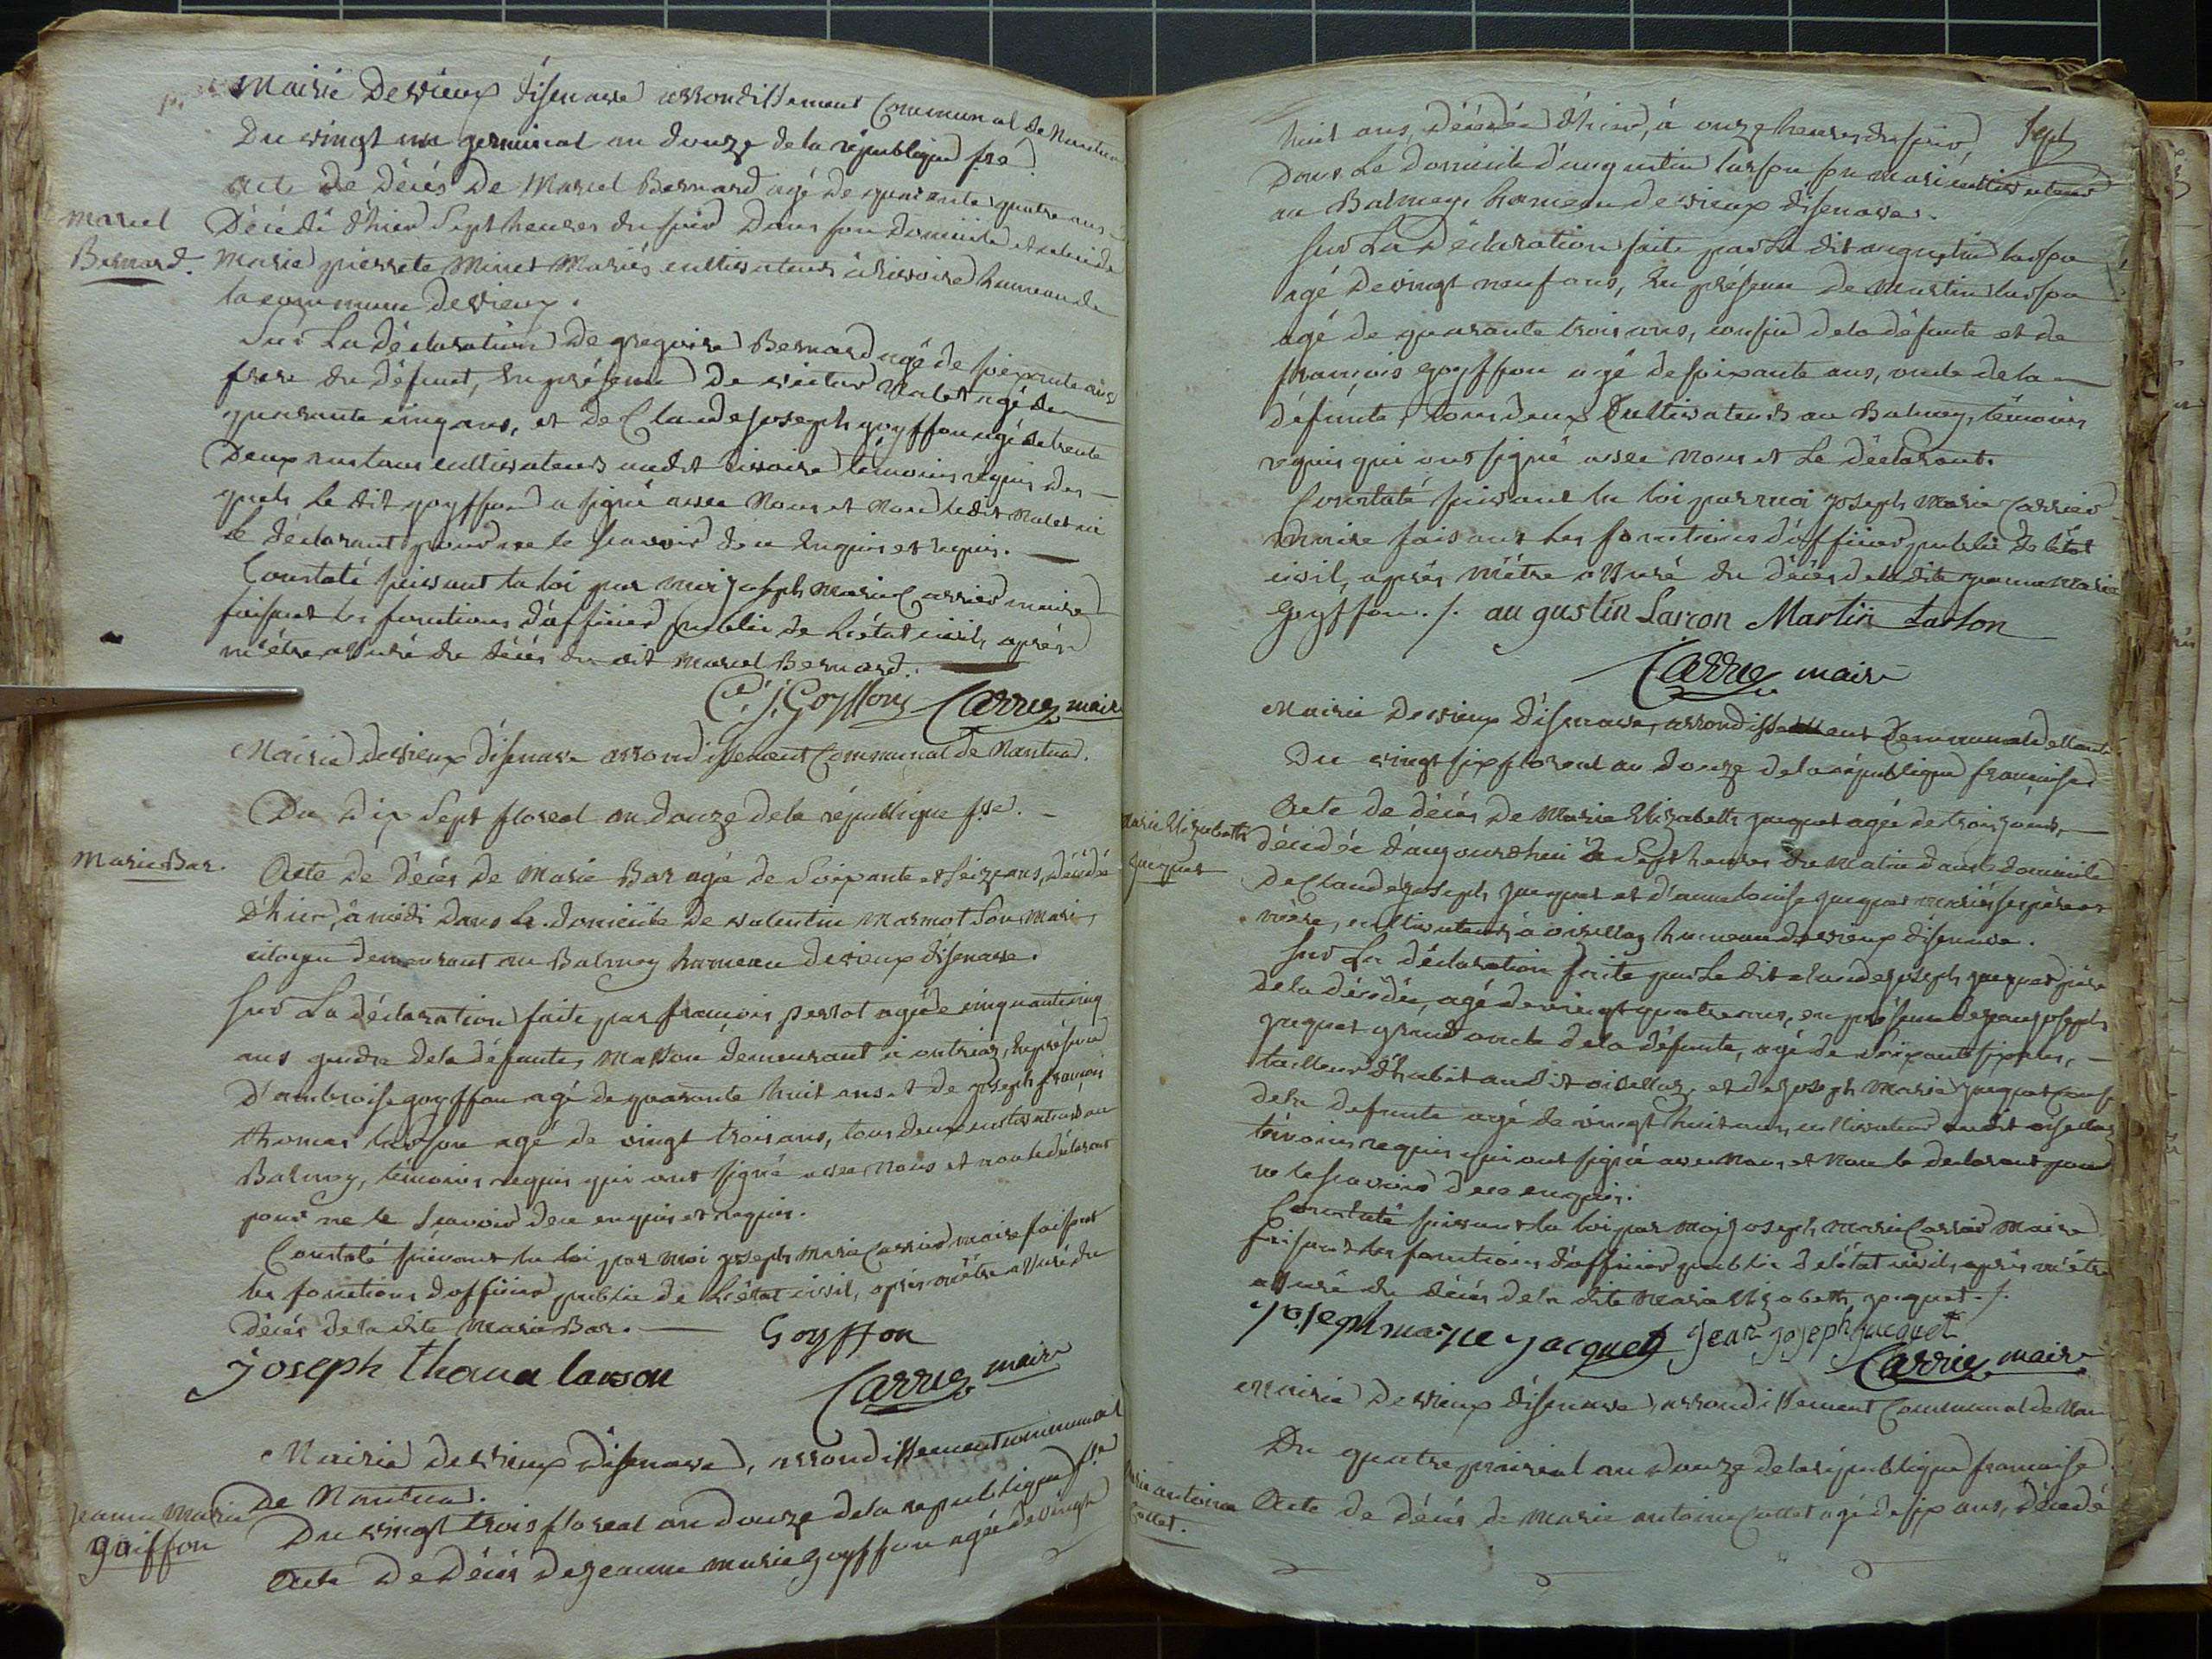 Mairie de vieux d'isenave arrondissement Communal de Nantua
Du vingt un germinal an douze de la république fse.
Marcel
Bernard.
acte de décès de Marcel Bernard agé de quarante quatre ans
Décédé d'hier Sept heures du soir Dans son domicile et celui de
Marie pierrete Minet Mariés cultivateurs à hameau de
la commune de vieux.
Sur La déclaration De gregoire Bernard agé de soixante ans
frere du défunt, En présence De victor Malet agé de
quarante cinq ans, et de Claude joseph goyffon agé de trente
Deux ans tous cultivateurs audit témoins requis des
quels le dit goyffon a signé avec Nous et Non ledit Malet ni
le déclarant pour ne le scavoir de ce Enquis et requis.
Constaté suivant la loi par moi joseph Marie Carrier maire
faisant les fonctions d'officier public de l'état civil, après
m'être assuré du décès du dit Marcel Bernard.
C. j. Goyffon Carrier maire
Mairie de vieux d'isenave arrondissement Communal de Nantua.
Du Dix Sept floreal an Douze de la république fse.
Marie Bar.
Acte de décès de Marie Bar agé de Soixante et seize ans, décédé
d'hier, à midi dans le domicile de valentin Marmot Son Mari,
citoyen demeurant au Balmay hameau de vieux d'isenave.
Sur La déclaration faite par françois perrot agé de cinquante cinq
ans gendre de la défunte, Masson demeurant à outriaz, En présence
D'ambroise goyffon agé de quarante huit ans et de joseph françois
thomas larson agé de vingt trois ans, tous deux cultivateurs au
Balmay, témoins requis qui ont signé avec Nous et non le déclarant
pour ne le Scavoir de ce enquis et requis.
Constaté suivant la loi par moi joseph Marie Carrier maire faisant
les fonctions d'officier public de l'état civil, après m'être assuré du
décès de la dite Marie Bar. Goyffon
joseph thoma larson
Carrier maire
Mairie de vieux d'isenave, arrondissement communal
de Nantua.
jeanne Marie
goiffon
Du vingt trois floreal an douze de la republique fse
Acte De Décès De jeanne marie goyffon agée de vingt
Sept
huit ans, décédée d'hier, à onze heures du soir,
Dans Le domicile d'augustin larson son mari cultivateur
au Balmay, hameau de vieux d'isenave.
Sur La Déclaration faite par Le dit augustin larson
agé de vingt neuf ans, En présence De Martin larson
agé de quarante trois ans, cousin de la défunte et de
françois goyffon agé de soixante ans, oncle de la
défunte, tous deux Cultivateurs au Balmay, témoins
requis qui ont signé avec Nous et Le déclarant.
Constaté suivant la loi par moi joseph Marie Carrier
maire faisant les fonctions d'officier public de l'état
civil, après m'être assuré du décès de la dite jeanne Marie
Goyffon./. augustin Larcon Martin Larson
Carrier maire
Mairie de vieux d'isenave, arrondissement Communal de Nantua
Du vingt six floreal an douze de la république française
Marie Elizabeth
jacquet
Acte de décès de Marie Elizabeth jacquet agée de trois jours,
décédée d'aujourd'hui à Sept heures du Matin dans le domicile
De Claude joseph jacquet et d'anne louise jacquet mariés ses père et
mère, cultivateurs à oisellaz hameau de vieux d'isenave.
Sur La déclaration faite par Le dit claude joseph jacquet père
de la décédée, agé de vingt quatre ans, en présence de jean joseph
jacquet grand oncle de la défunte, agé de soixante six ans,
tailleur d'habit audit oisellaz, et de joseph Marie jacquet cousin
de la defunte agé de vingt huit ans, cultivateur audit oisellaz
témoins requis qui ont signé avec Nous et Non le declarant pour
ne le scavoir de ce enquis.
Constaté suivant la loi par Moi joseph Marie Carrier Maire
faisant les fonctions d'officier public de l'état civil, après m'être
assuré du décès de la dite Marie Elizabeth jacquet./.
joseph marie jacquet jean joseph jacquet
Carrier maire
Mairie De vieux d'isenave, arrondissement Communal de Nan
Du quatre prairial an Douze de la république française
Marie antoine
Collet.
Acte de décès de Marie antoine Collet agé de six ans, décédé